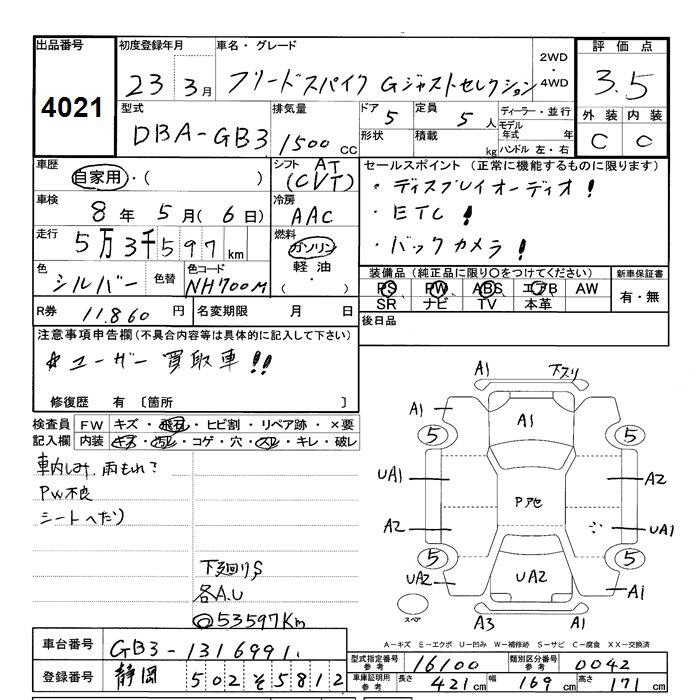 出品番号
4021
初度登録年月
23年 3月
車名・グレード
フリードスパイク Gジャストセレクション
2WD
・
4WD
評価点
3.5
外装 内装
C C
型式
DBA-GB3
排気量
1500 CC
ドア
5
形状
定員
5 人
積載
kg
ディーラー・並行
モデル年式 年
ハンドル 左・右
車歴
自家用・( )
シフト AT
(CVT)
車検
8年 5月(6日)
冷房
AAC
走行
5万3千597km
燃料
ガソリン
・
軽油
( )
色
シルバー
色替
色コード
NH700M
R券 11,860 円
名変期限 月 日
セールスポイント(正常に機能するものに限ります)
・ディスプレイオーディオ!
・ETC!
・バックカメラ!
装備品(純正品に限り○をつけてください)
PS PW ABS エアB AW
SR ナビ TV 本革
新車保証書
有・無
後日品
注意事項申告欄(不具合内容等は具体的に記入して下さい)
☆ユーザー買取車!!
修復歴 有 〔箇所 〕
検査員記入欄
FW キズ・飛石・ヒビ割・リペア跡・×要
内装 キズ・汚レ・コゲ・穴・スレ・キレ・破レ
車内しみ、雨もれ?
PW不良
シートへたり
下廻りS
各A,U
@53597Km
A1 下スリ
A1 A1
5 5
UA1 A2
Pアセ
A2 UA1
5 5
UA2 UA2 A1
スペア
A3 A1
A-キズ E-エクボ U-凹み W-補修跡 S-サビ C-腐食 XX-交換済
車台番号 GB3-1316991
登録番号 静岡 502 そ 5812
型式指定番号 参考 16100
類別区分番号 参考 0042
車庫証明用 参考 長さ 421cm 幅 169cm 高さ 171cm